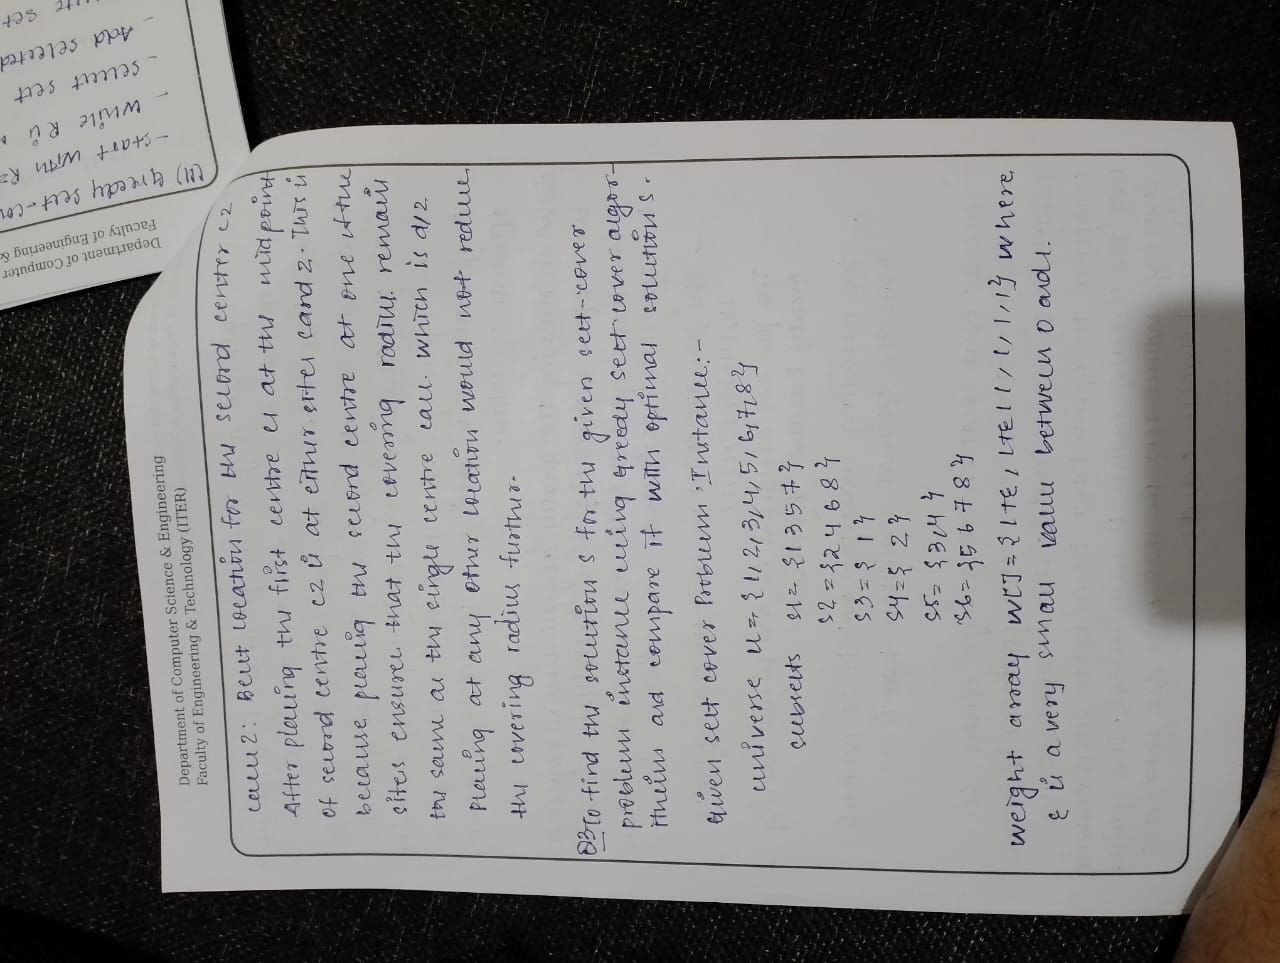 Department of Computer Science & Engineering
Faculty of Engineering & Technology (ITER)
case 2: Best location for the second center c2
After placing the first centre c1 at the midpoint
of second centre c2 is at either sites s and z. This is
because placing the second centre at one of the
sites ensures that the covering radius remain
the same as the single centre case which is d/2
Placing at any other location would not reduce
the covering radius further.
Q3 To find the solutions for the given set-cover
problem instance using greedy set cover algor-
ithm and compare it with optimal solutions.
Given set cover Problem Instance:-
universe u = {1,2,3,4,5,6,7,8}
subsets s1 = {1 3 5 7}
s2 = {2 4 6 8}
s3 = { 1}
s4 = { 2}
s5 = {3,4}
s6 = {5 6 7 8}
weight array w[] = {1+ε, 1+ε, 1, 1, 1, 1} where
ε is a very small value between 0 and 1.
Department of Computer
Faculty of Engineering &
(ii) Greedy set-cov
- start with R=
- while R is
- select set
- Add selected
set